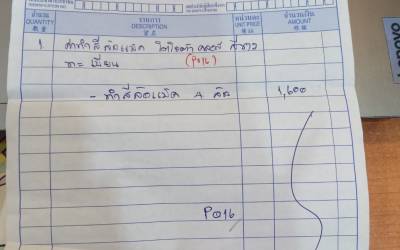 จำนวน รายการ หน่วยละ จำนวนเงิน
QUANTITY DESCRIPTION UNIT PRICE AMOUNT
1 ค่าทำสีล้อแม็ค สีขาว
ทะเบียน (P016)
- ทำสีล้อแม็ค 4 ล้อ 1,600
P016